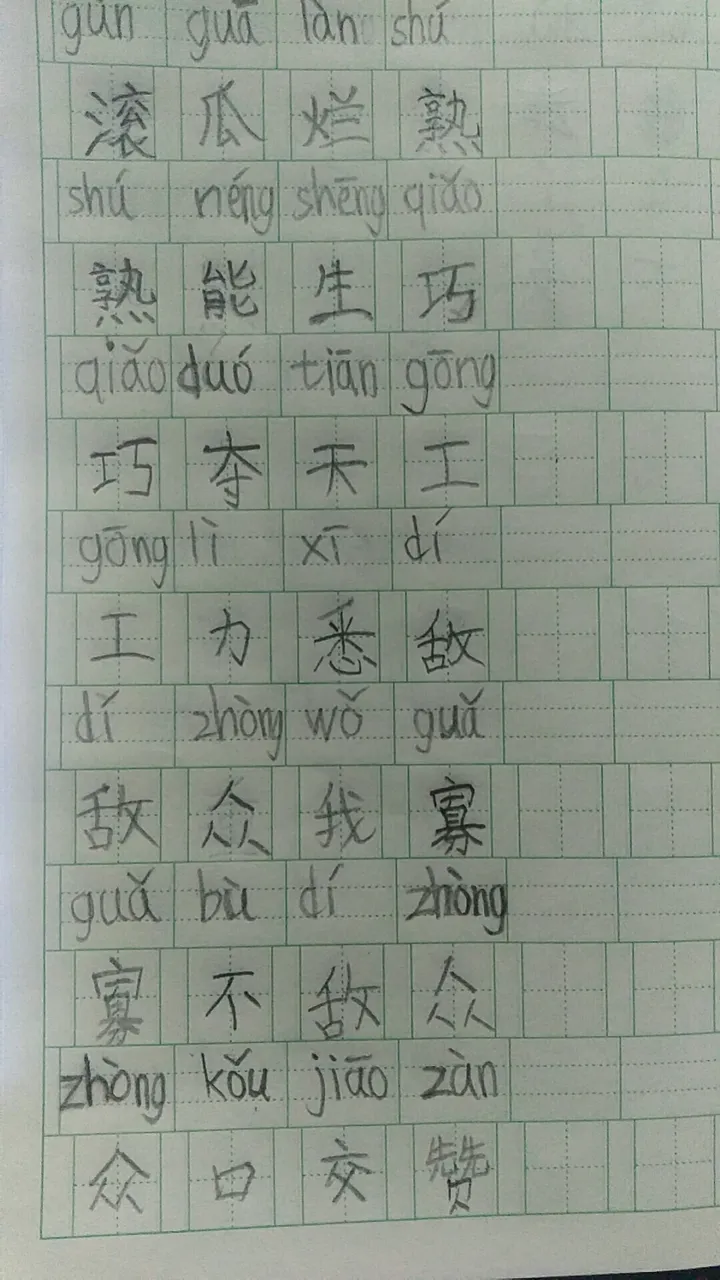 gǔn guā làn shú
滚瓜烂熟
shú néng shēng qiǎo
熟能生巧
qiǎo duó tiān gōng
巧夺天工
gōng lì xī dí
工力悉敌
dǐ zhòng wǒ guǎ
敌众我寡
guǎ bù dí zhòng
寡不敌众
zhòng kǒu jiāo zàn
众口交赞